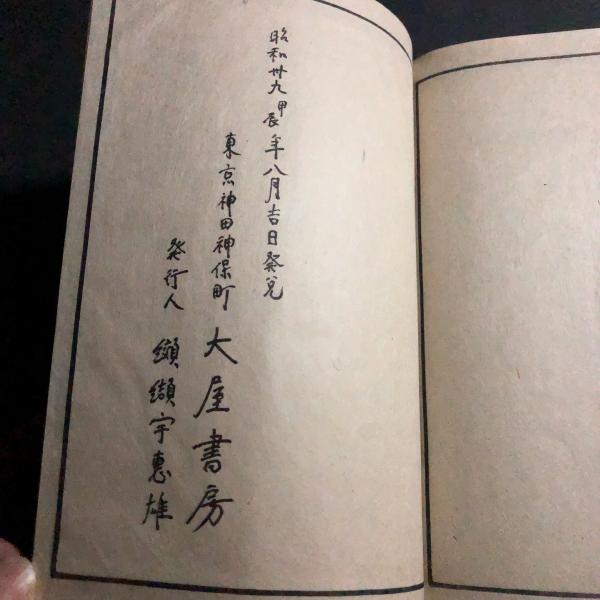 昭和卅九甲辰年八月吉日発兌
東京神田神保町 大屋書房
発行人 纐纈宇恵雄